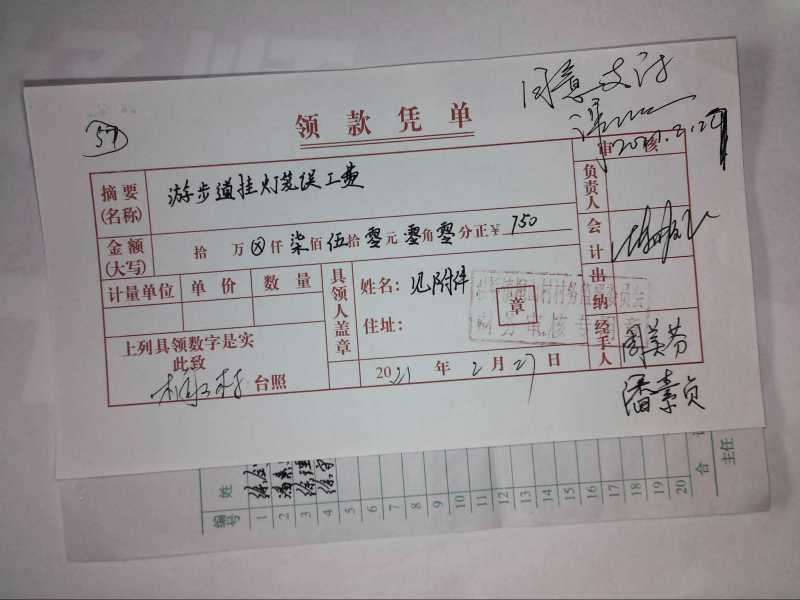 同意支付
2021.2.27
57
领款凭单
审核
摘要(名称)
游步道挂灯笼误工费
负责人
金额(大写)
拾 万 ⊗ 仟 柒 佰 伍 拾 零 元 零 角 零 分正 ¥ 750
会计
计量单位 单价 数量
具领人盖章
姓名: 见附件
住址:
章
村村务监督委员会
财务审核专用章
出纳
上列具领数字是实
此致
台照
2021 年 2 月 27 日
经手人
周美芬
潘素贞
编号 1 2 3 4 5 6 7 8 9 10 11 12 13 14 15 16 17 18 19 20 合
姓
主任